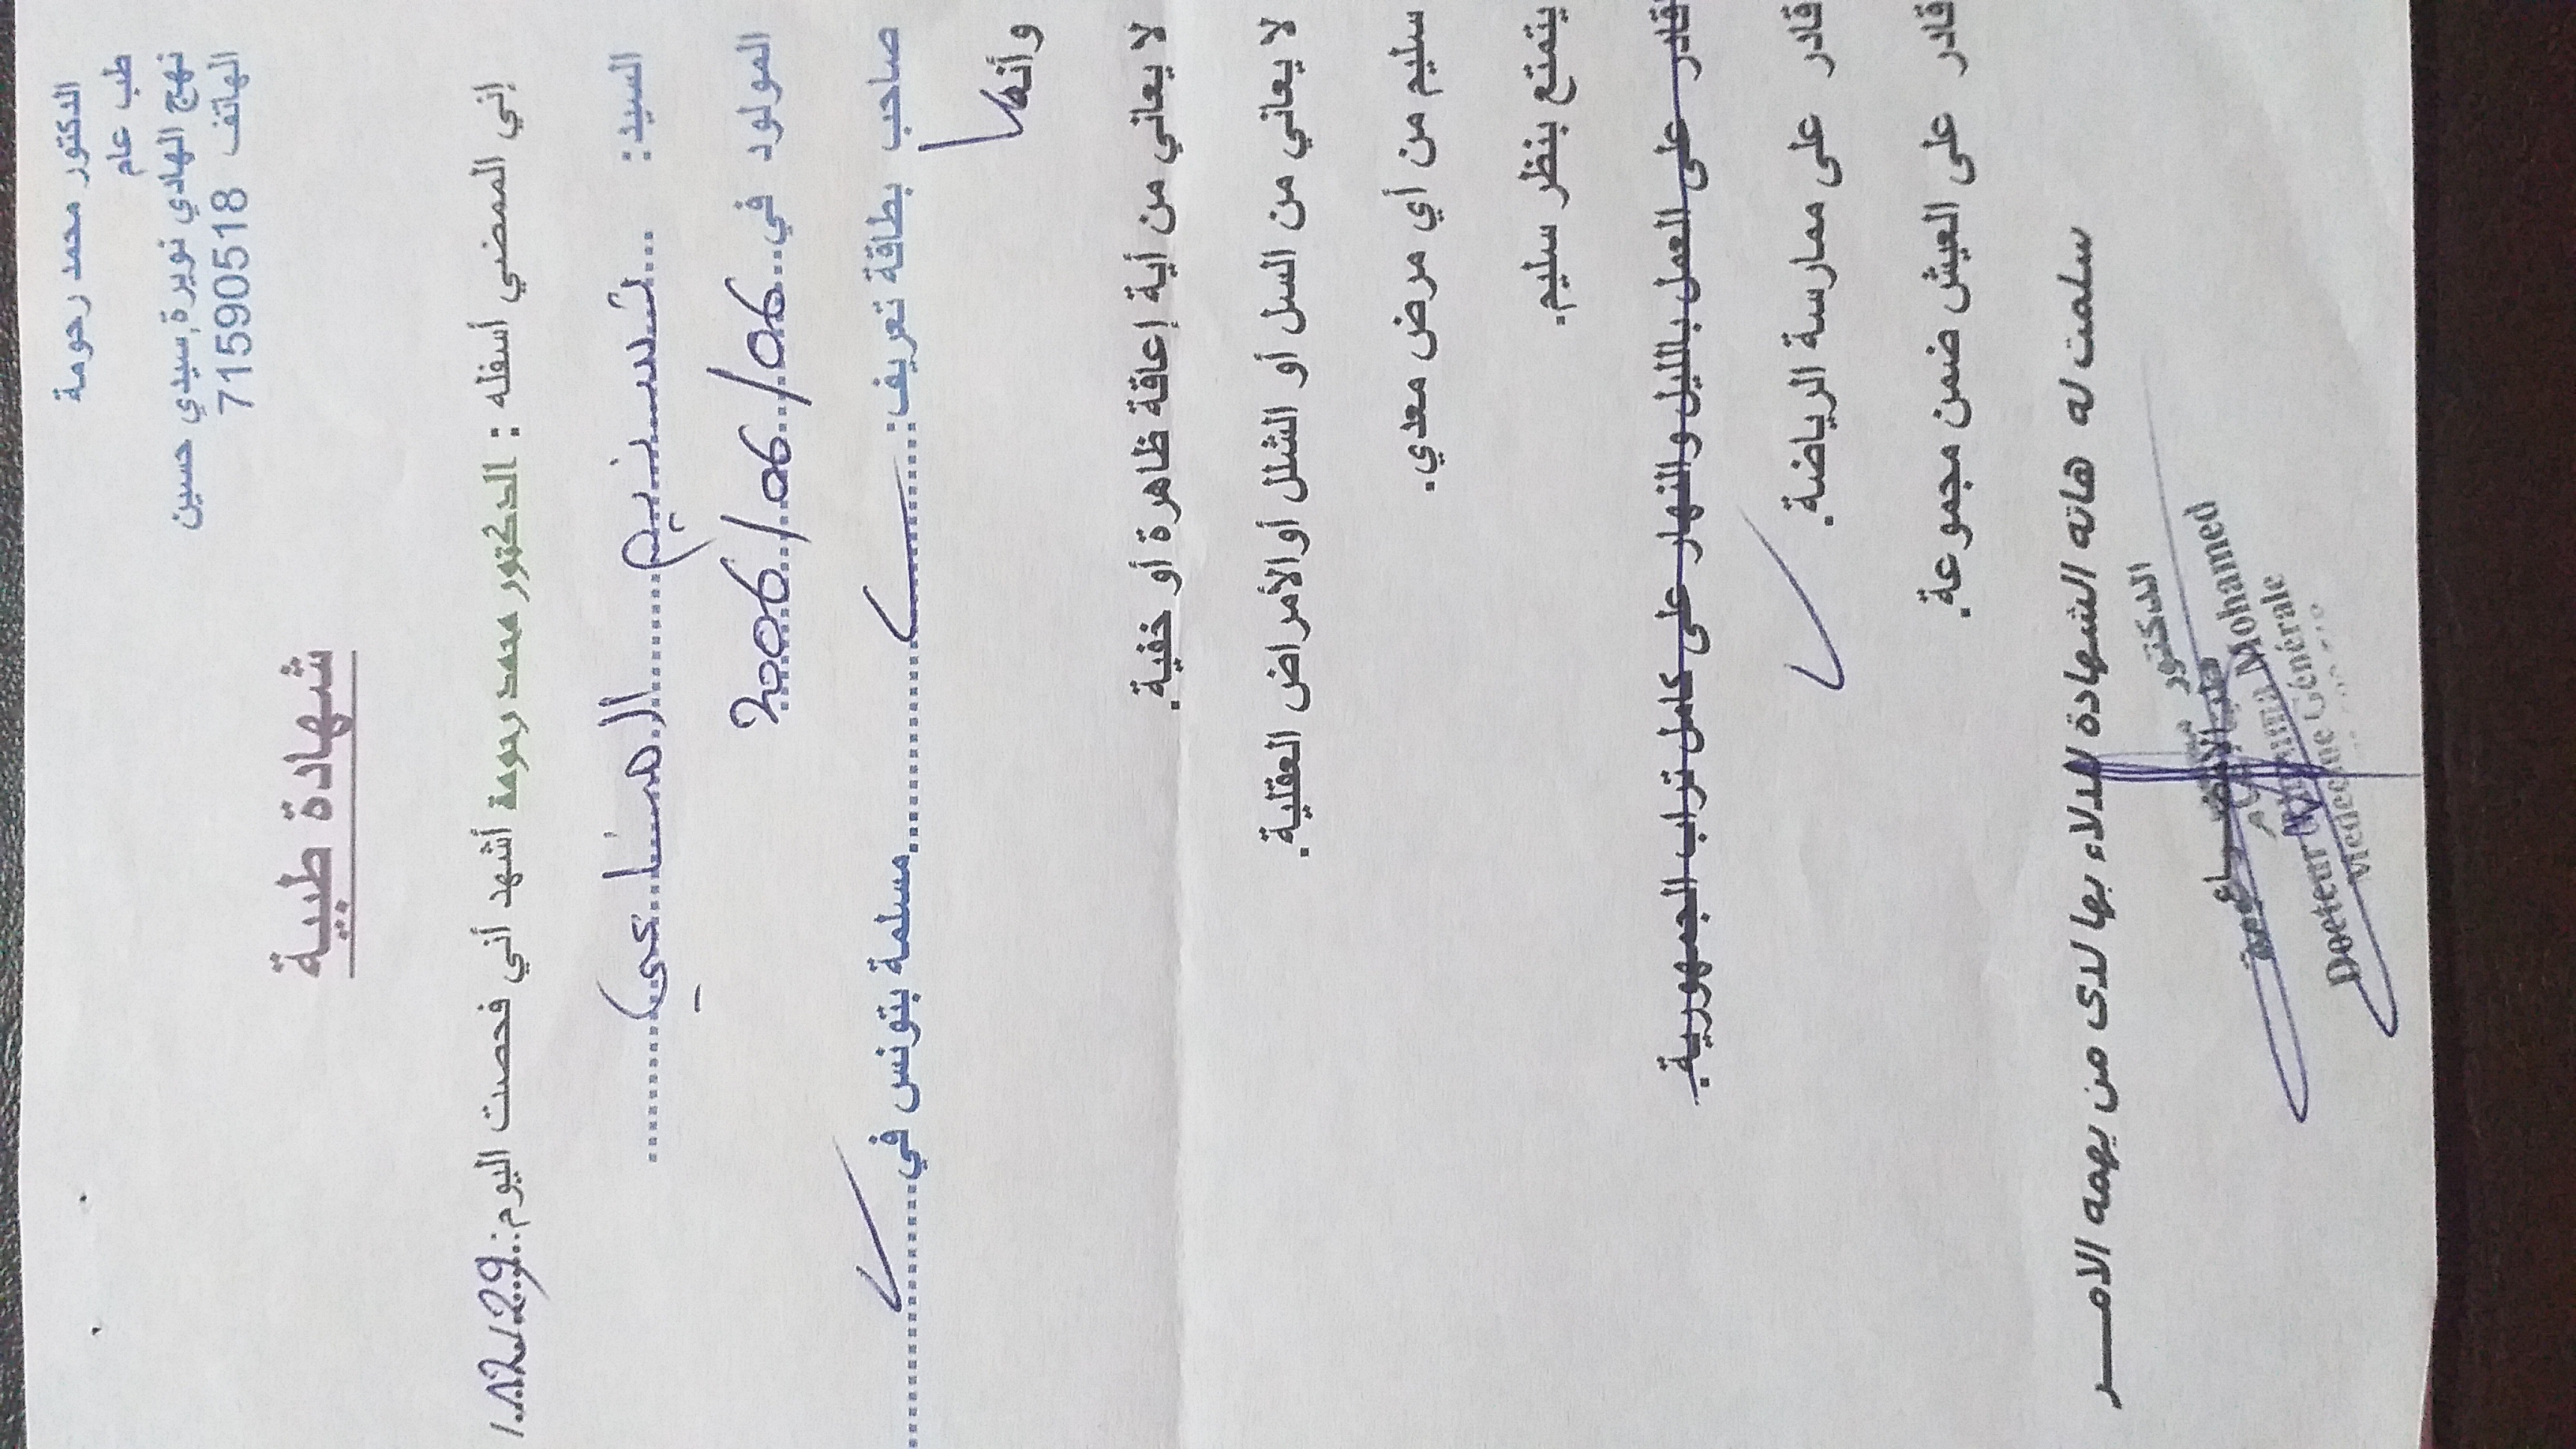 الدكتور محمد رحومة
طب عام
نهج الهادي نويرة,سيدي حسين
الهاتف 71590518
شهادة طبية
إني الممضي أسفله : الدكتور محمد رحومة أشهد أني فحصت اليوم:
السيد: ... تسنيم المناعي
المولود في 2006/06/06
صاحب بطاقة تعريف: مسلمة بتونس في
وأنها
لا يعاني من أية إعاقة ظاهرة أو خفية.
لا يعاني من السل أو الشلل أوالأمراض العقلية.
سليم من أي مرض معدي.
يتمتع بنظر سليم.
قادر على العمل بالليل والنهار على كامل تراب الجمهورية.
قادر على ممارسة الرياضة.
قادر على العيش ضمن مجموعة.
سلمت له هاته الشهادة للدلاء بها لدى من يهمه الامـــر
الدكتور
Docteur Mohamed
Médecine Générale